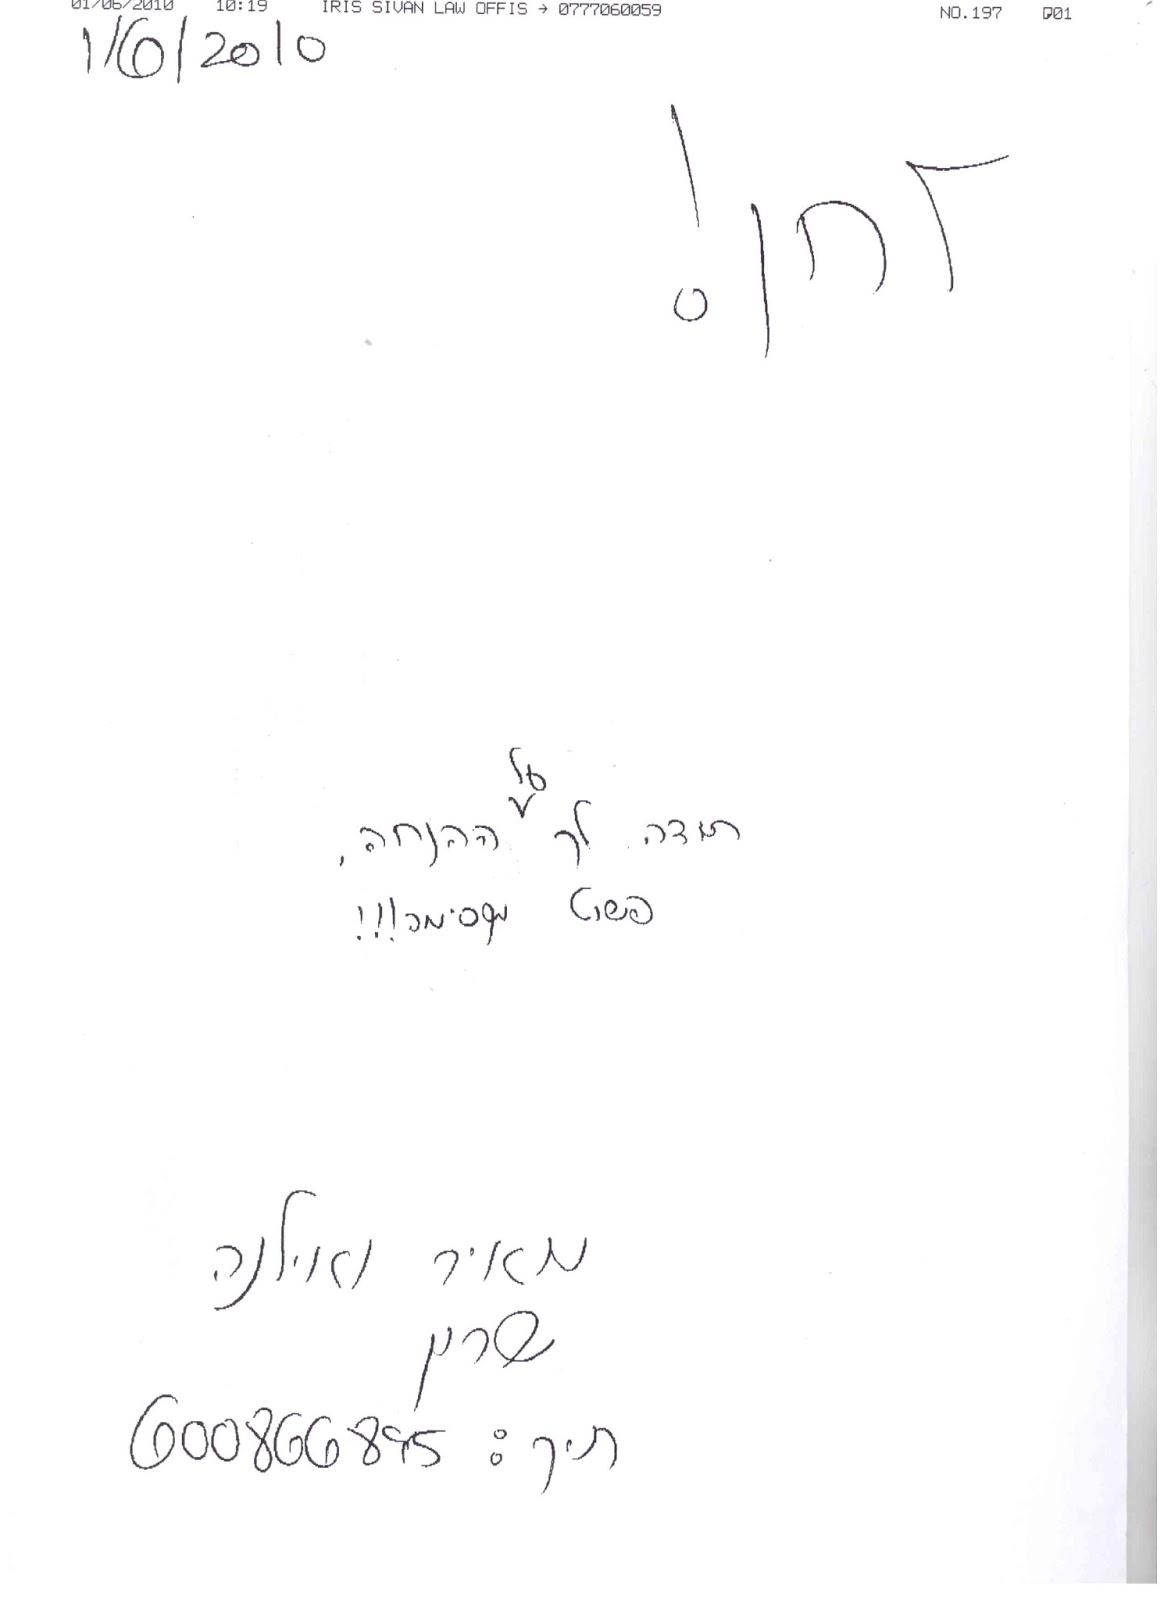 01/06/2010 10:19 IRIS SIVAN LAW OFFIS → 0777060059 NO.197 P01
1/6/2010
רחן!
תודה לך על ההנחה,
פשוט מקסימה!!!
מאיר ואוילנה
שרון
תיק: 600866895